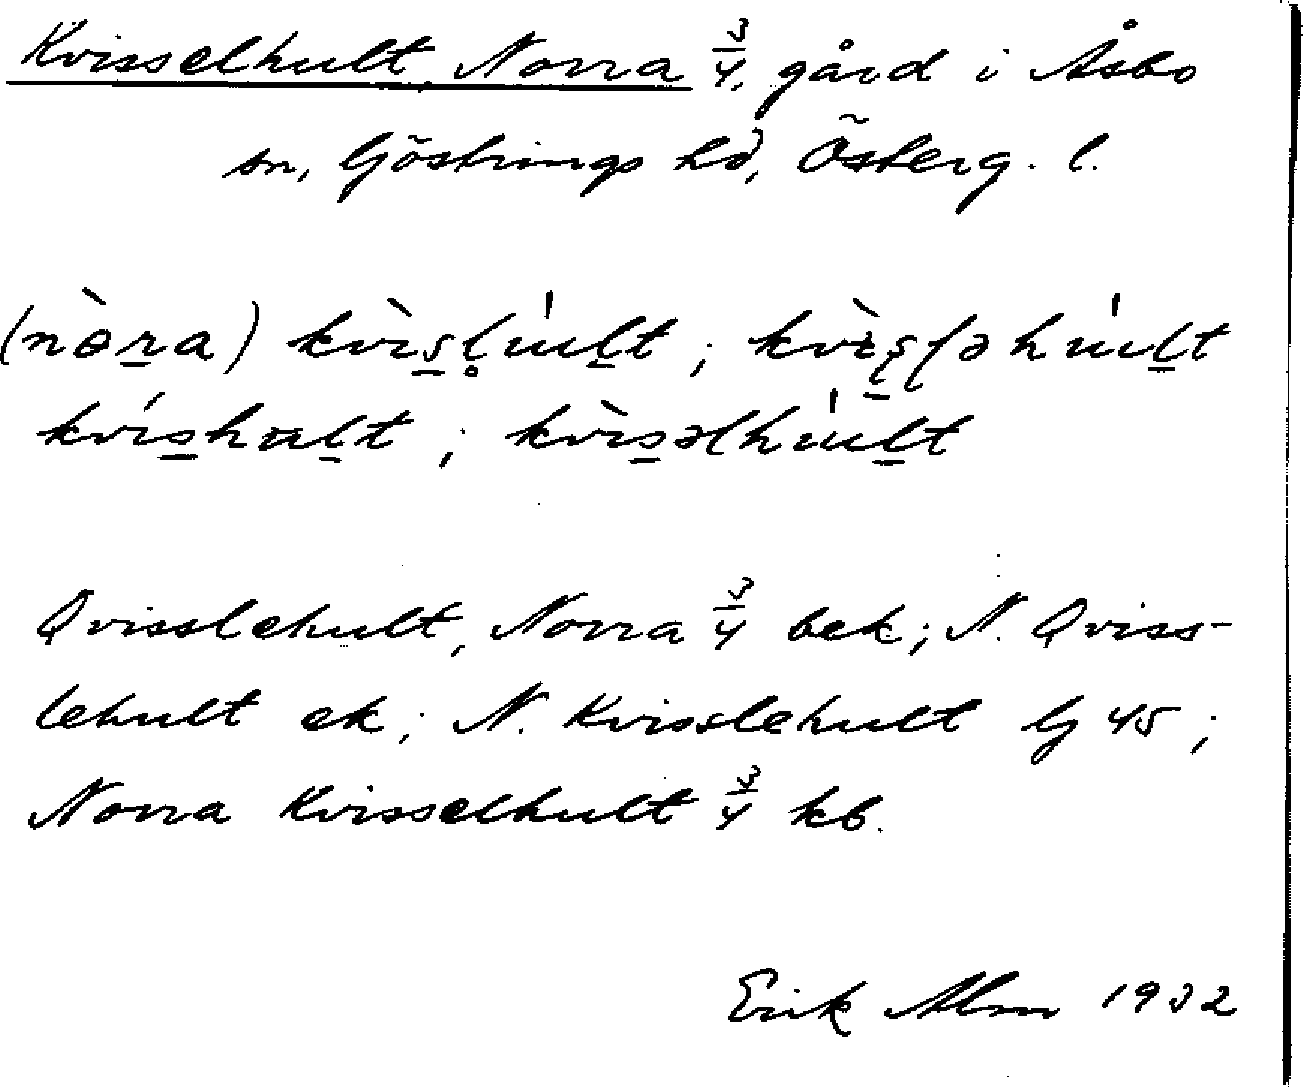 Kvisselhult, Norra 3/4, gård i Åsbo
sn, Göstrings hd, Österg. l.
(nòra) kvìsḷu̍lt ; kvìsləhu̍lt
kvíshalt ; kvìsəlhu̍lt
Qvisslehult, Norra 3/4 bek; N. Qviss-
lehult ek; N. Kvisslehult Gj 45;
Norra Kvisselhult 3/4 kb.
Erik Alm 1932